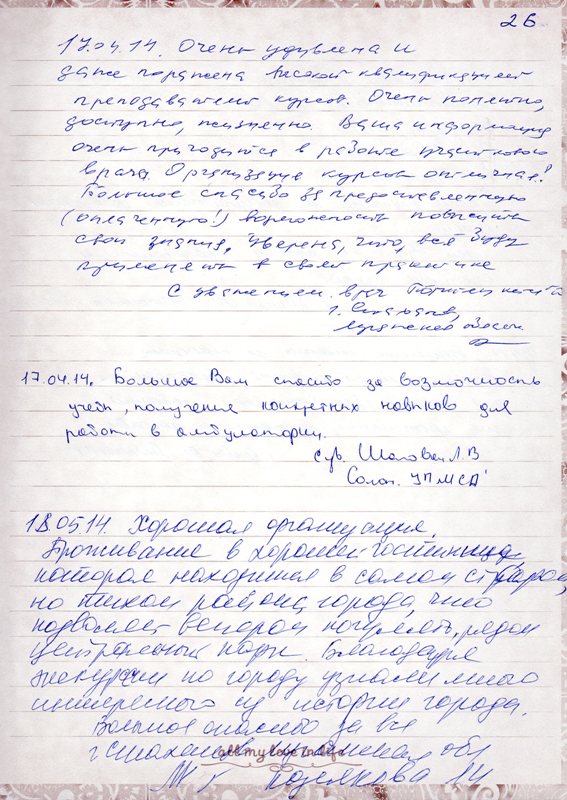 26
17.04.14. Очень удивлена и
даже поражена высокой квалификацией
преподавателей курсов. Очень понятно,
доступно, жизненно. Ваша информация
очень пригодится в работе участкового
врача. Организация курсов отличная!
Большое спасибо за предоставленную
(оплаченную!) возможность повысить
свои знания, уверена, что, всё буду
применять в своей практике
С уважением врач
г.
17.04.14. Большое Вам спасибо за возможность
учебы, получения конкретных навыков для
работы в амбулатории.
Л.В
18.05.14. Хорошая организация.
Проживание в хорошей гостинице
которая находится в самом старом,
но тихом районе города, что
позволяет вечером погулять, рядом
центральный парк. Благодаря
экскурсии по городу узнали много
интересного из истории города.
Большое спасибо за все
all my love in life